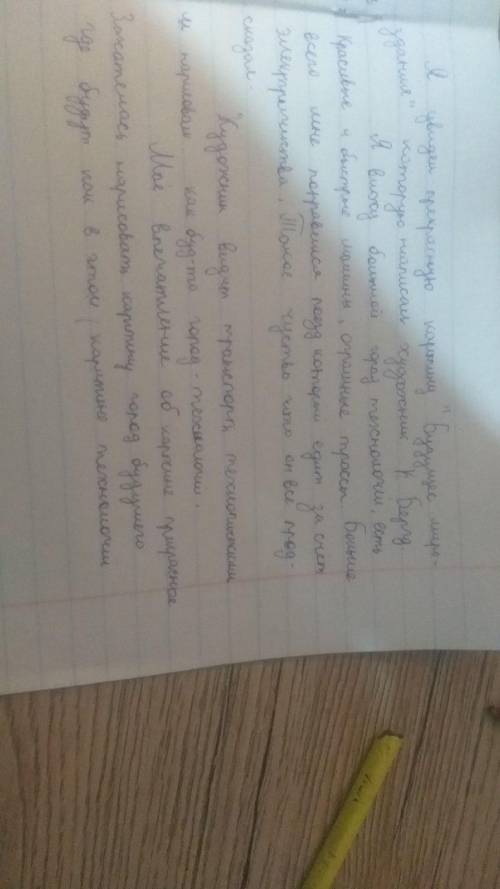 Я увидел прекрасную картину "Будущие мира-
здания" которую написал художник К Берд
Я вижу большой город технологии, есть
красивые и быстрые машины, огромные трассы. Больше
всего мне понравился поезд который едит за счёт
электричества. Такое чуство что он все пред-
сказал.
Художник видит транспорть технологичным
и нарисовал как буд-то город-технологии.
Моё впечатление об картине прикрасное
Захателась нарисовать картину город будушего
где будут как в этой картине технологии